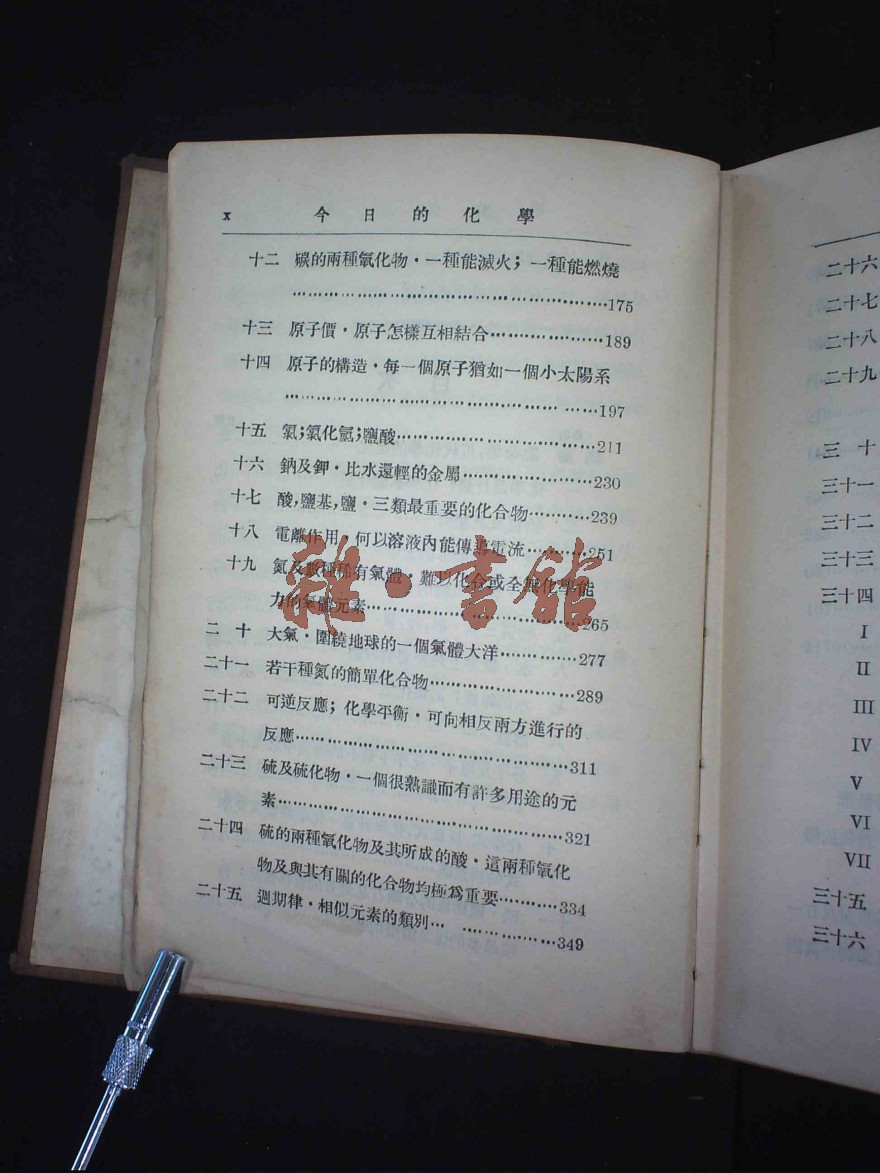 x 今日的化學
十二 碳的兩種氧化物·一種能滅火；一種能燃燒
……………………………………………175
十三 原子價·原子怎樣互相結合…………………189
十四 原子的構造·每一個原子猶如一個小太陽系
……………………………………………197
十五 氯；氯化氫；鹽酸……………………………211
十六 鈉及鉀·比水還輕的金屬…………………230
十七 酸，鹽基，鹽·三類最重要的化合物…………239
十八 電離作用·何以溶液內能傳導電流…………251
十九 氮及數種稀有氣體·難以化合或全無化學能
力的氣體元素……………………………265
二十 大氣·圍繞地球的一個氣體大洋……………277
二十一 若干種氮的簡單化合物……………………289
二十二 可逆反應；化學平衡·可向相反兩方進行的
反應………………………………………311
二十三 硫及硫化物·一個很熟識而有許多用途的元
素…………………………………………321
二十四 硫的兩種氧化物及其所成的酸·這兩種氧化
物及與其有關的化合物均極爲重要…………334
二十五 週期律·相似元素的類別…………………349
雜·書館
二十六
二十七
二十八
二十九
三十
三十一
三十二
三十三
三十四
I
II
III
IV
V
VI
VII
三十五
三十六